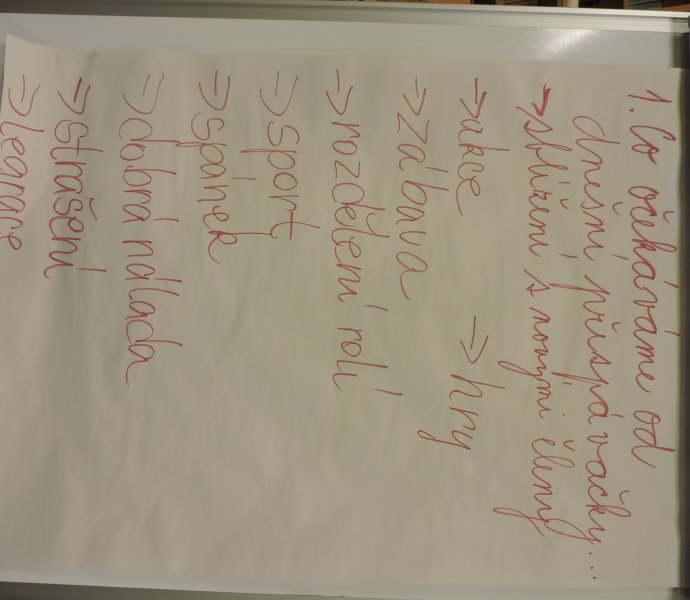 1. Co očekáváme od
dnešní přespávačky...
⇒ sblížení s novými členy
⇒ akce ⇒ hry
⇒ zábava
⇒ rozdělení rolí
⇒ sport
⇒ spánek
⇒ dobrá nálada
⇒ strašení
⇒ legrace